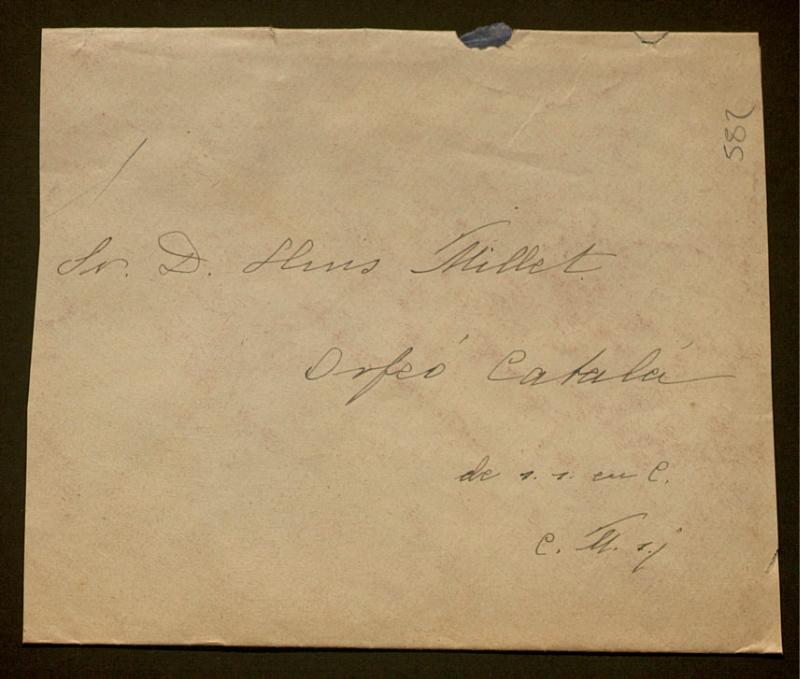 582
Sr. D. Lluis Millet
Orfeó Catalá
de s. s. en C.
C. M. s.j